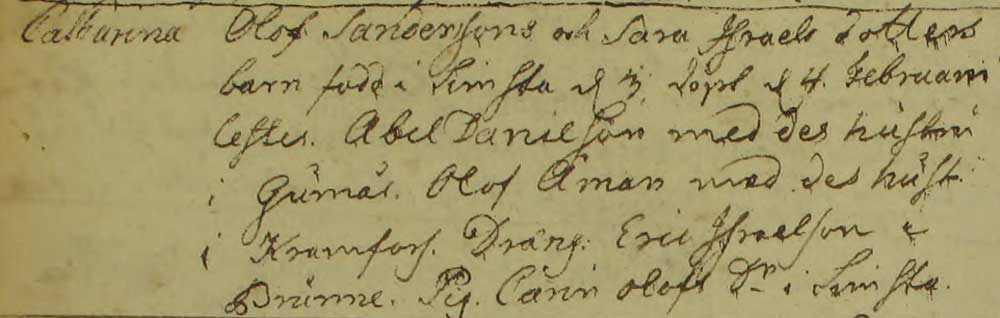 Catharina Olof Sanderssons och Sara Israels dotters
barn född i Limsta d 3. döpt d 4. Februarii
Testes. Abel Danielson med des hustru
i Gumås. Olof Åman med des hust.
i Kramfors. Dräng. Eric Israelson i
Brunne. Pig. Carin Olofs Dr i Limsta.